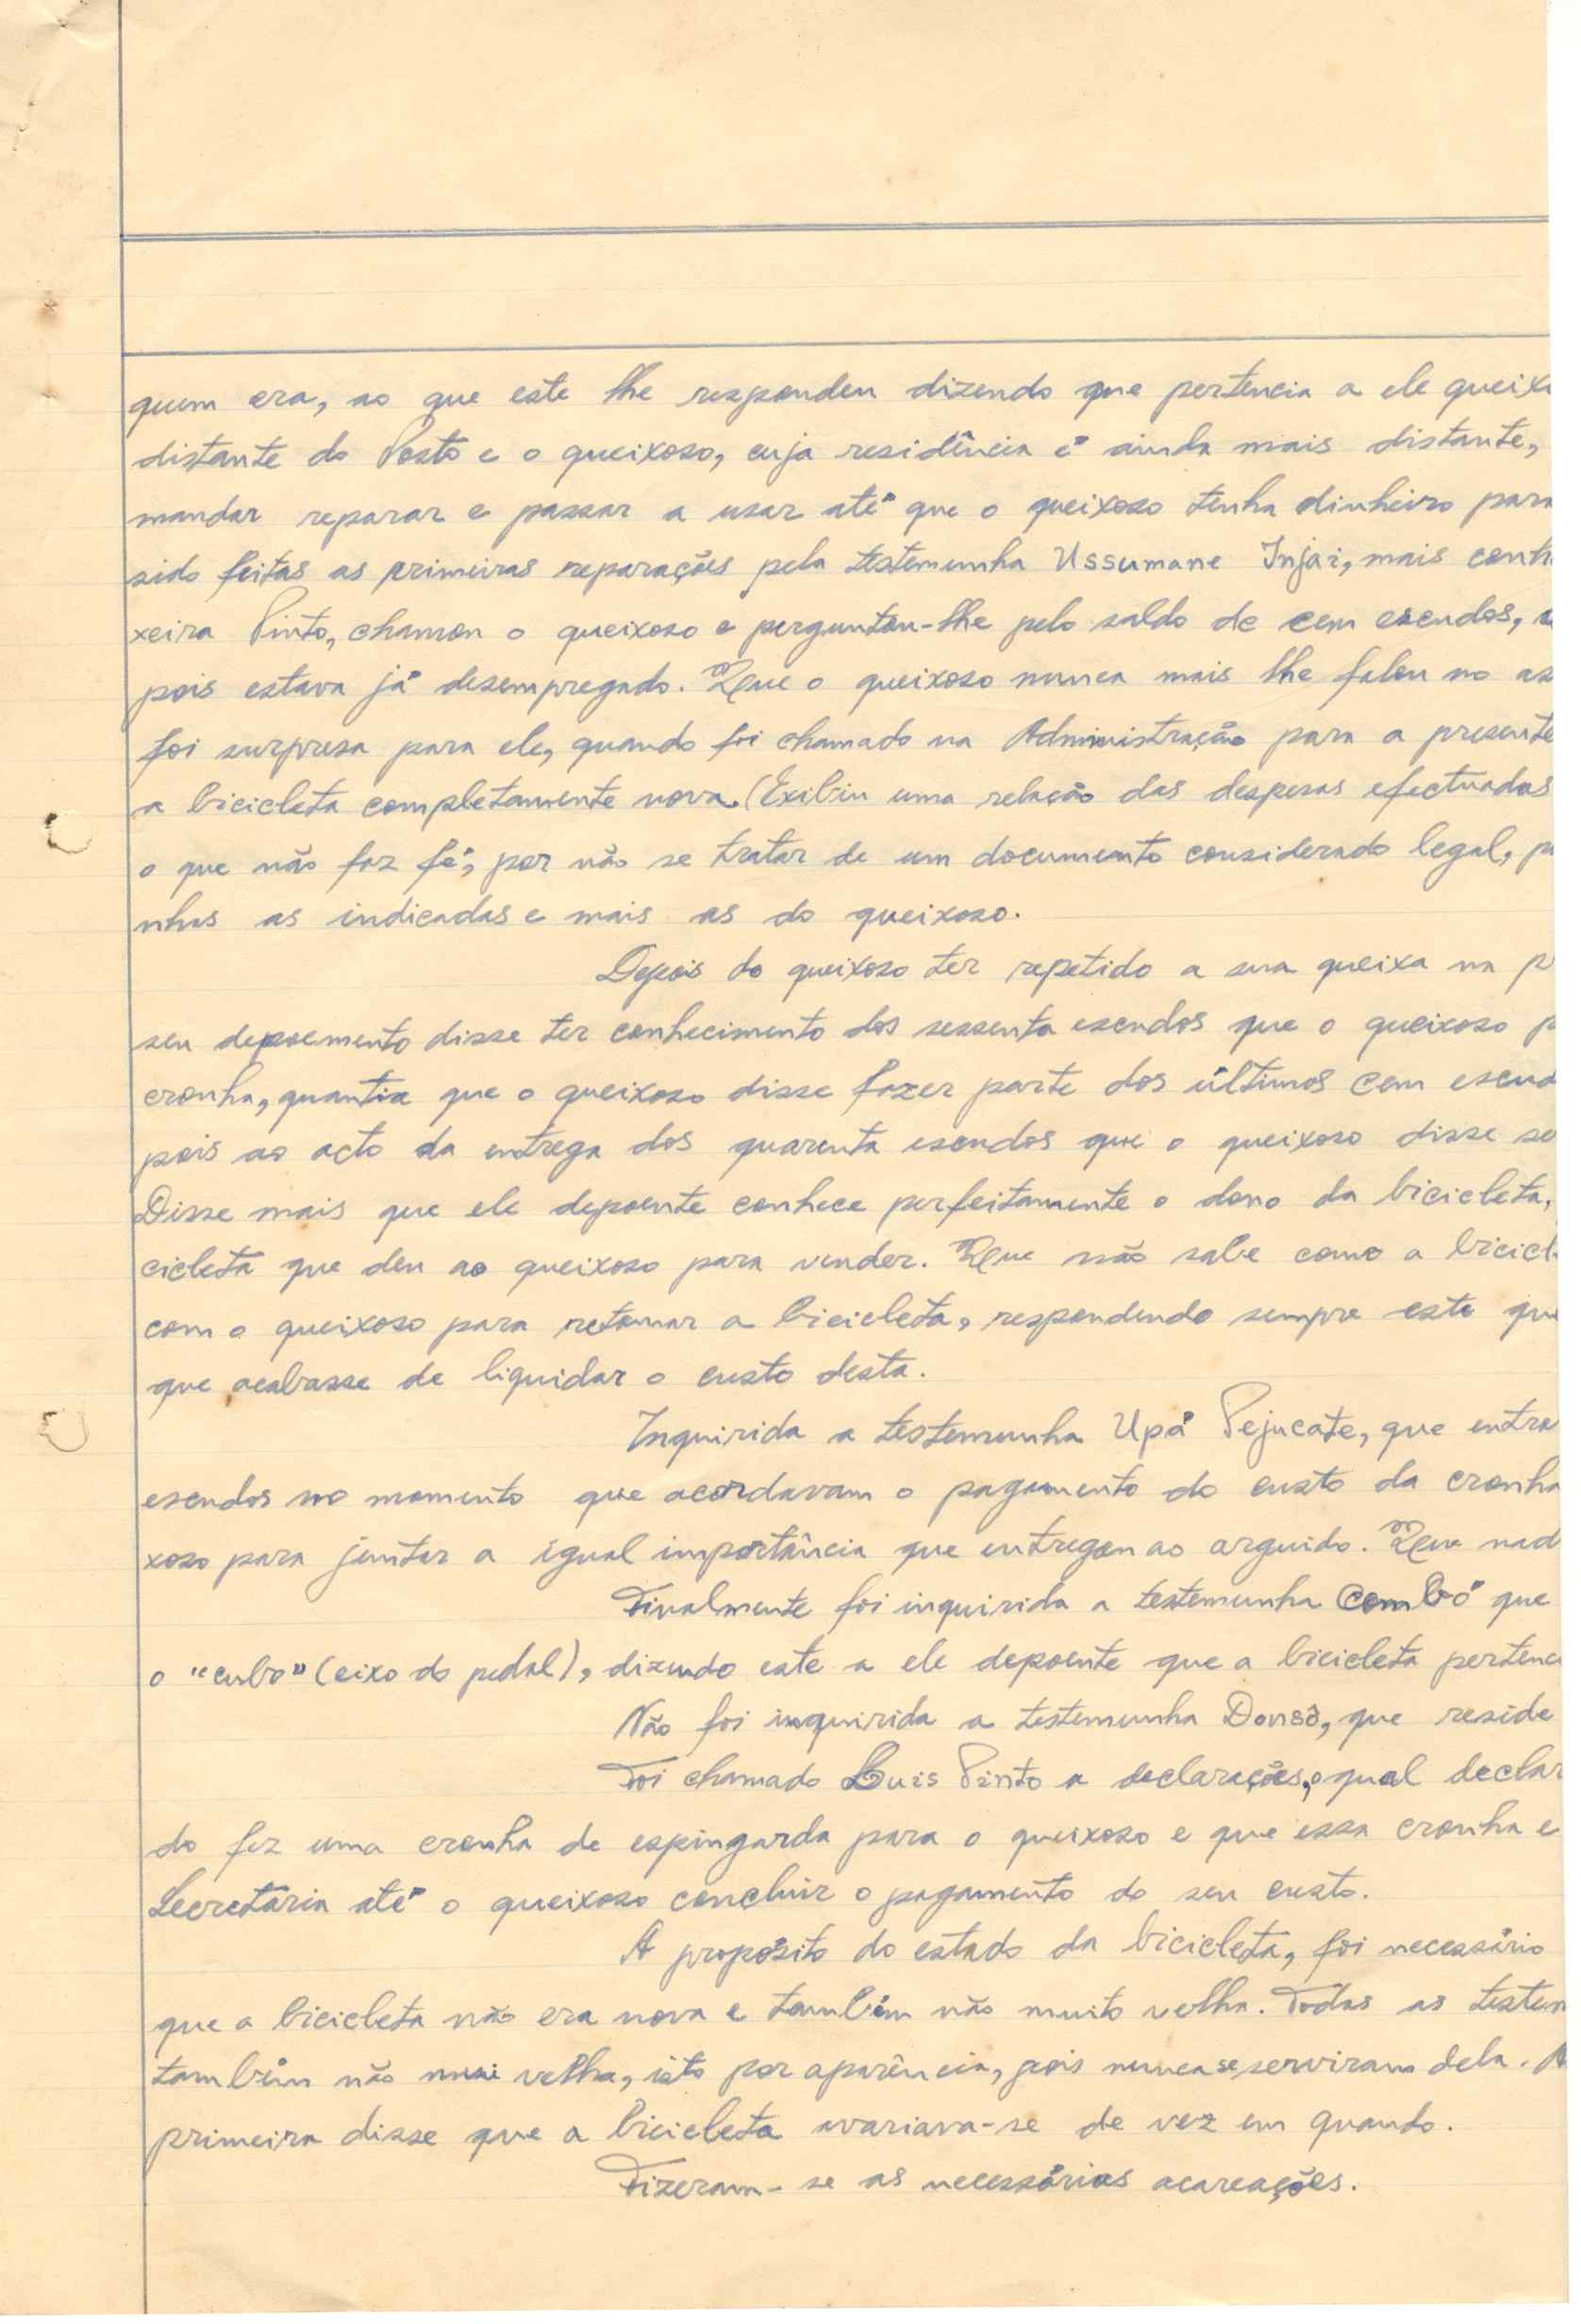 quem era, ao que este lhe respondeu dizendo que pertencia a ele queixo
distante do Posto e o queixoso, cuja residência é ainda mais distante,
mandar reparar e passar a usar até que o queixoso tenha dinheiro para
sido feitas as primeiras reparações pela testemunha Ussumane Injai, mais conh
xeira Pinto, chamou o queixoso e perguntou-lhe pelo saldo de cem escudos,
pois estava já desempregado. Que o queixoso nunca mais lhe falou no as
foi surpresa para ele, quando foi chamado na Administração para a presente
a bicicleta completamente nova. (Exibiu uma relação das despesas efectuadas
o que não faz fé, por não se tratar de um documento considerado legal, p
nhas as indicadas e mais as do queixoso.
Depois do queixoso ter repetido a sua queixa na p
seu depoemento disse ter conhecimento dos sessenta escudos que o queixoso p
cronha, quantia que o queixoso disse fazer parte dos últimos cem escud
pois ao acto da entrega dos quarenta escudos que o queixoso disse se
Disse mais que ele depoente conhece perfeitamente o dono da bicicleta,
cicleta que deu ao queixoso para vender. Que não sabe como a bicicl
com o queixoso para retomar a bicicleta, respondendo sempre este que
que acabasse de liquidar o custo desta.
Inquirida a testemunha Upá Pejucate, que entre
escudos no momento que acordavam o pagamento do custo da cronha
xoso para juntar a igual importância que entregou ao arguido. Que nad
Finalmente foi inquirida a testemunha Combó que
o "cubo" (eixo do pedal), dizendo este a ele depoente que a bicicleta pertenc
Não foi inquirida a testemunha Donsó, que reside
Foi chamado Luis Pinto a declarações, o qual declar
do fez uma cronha de espingarda para o queixoso e que essa cronha e
Secretaria até o queixoso concluir o pagamento do seu custo.
A propósito do estado da bicicleta, foi necessário
que a bicicleta não era nova e também não muito velha. Todas as testem
também não mui velha, isto por aparência, pois nunca se serviram dela. A
primeira disse que a bicicleta avariava-se de vez em quando.
Fizeram-se as necessárias acareações.